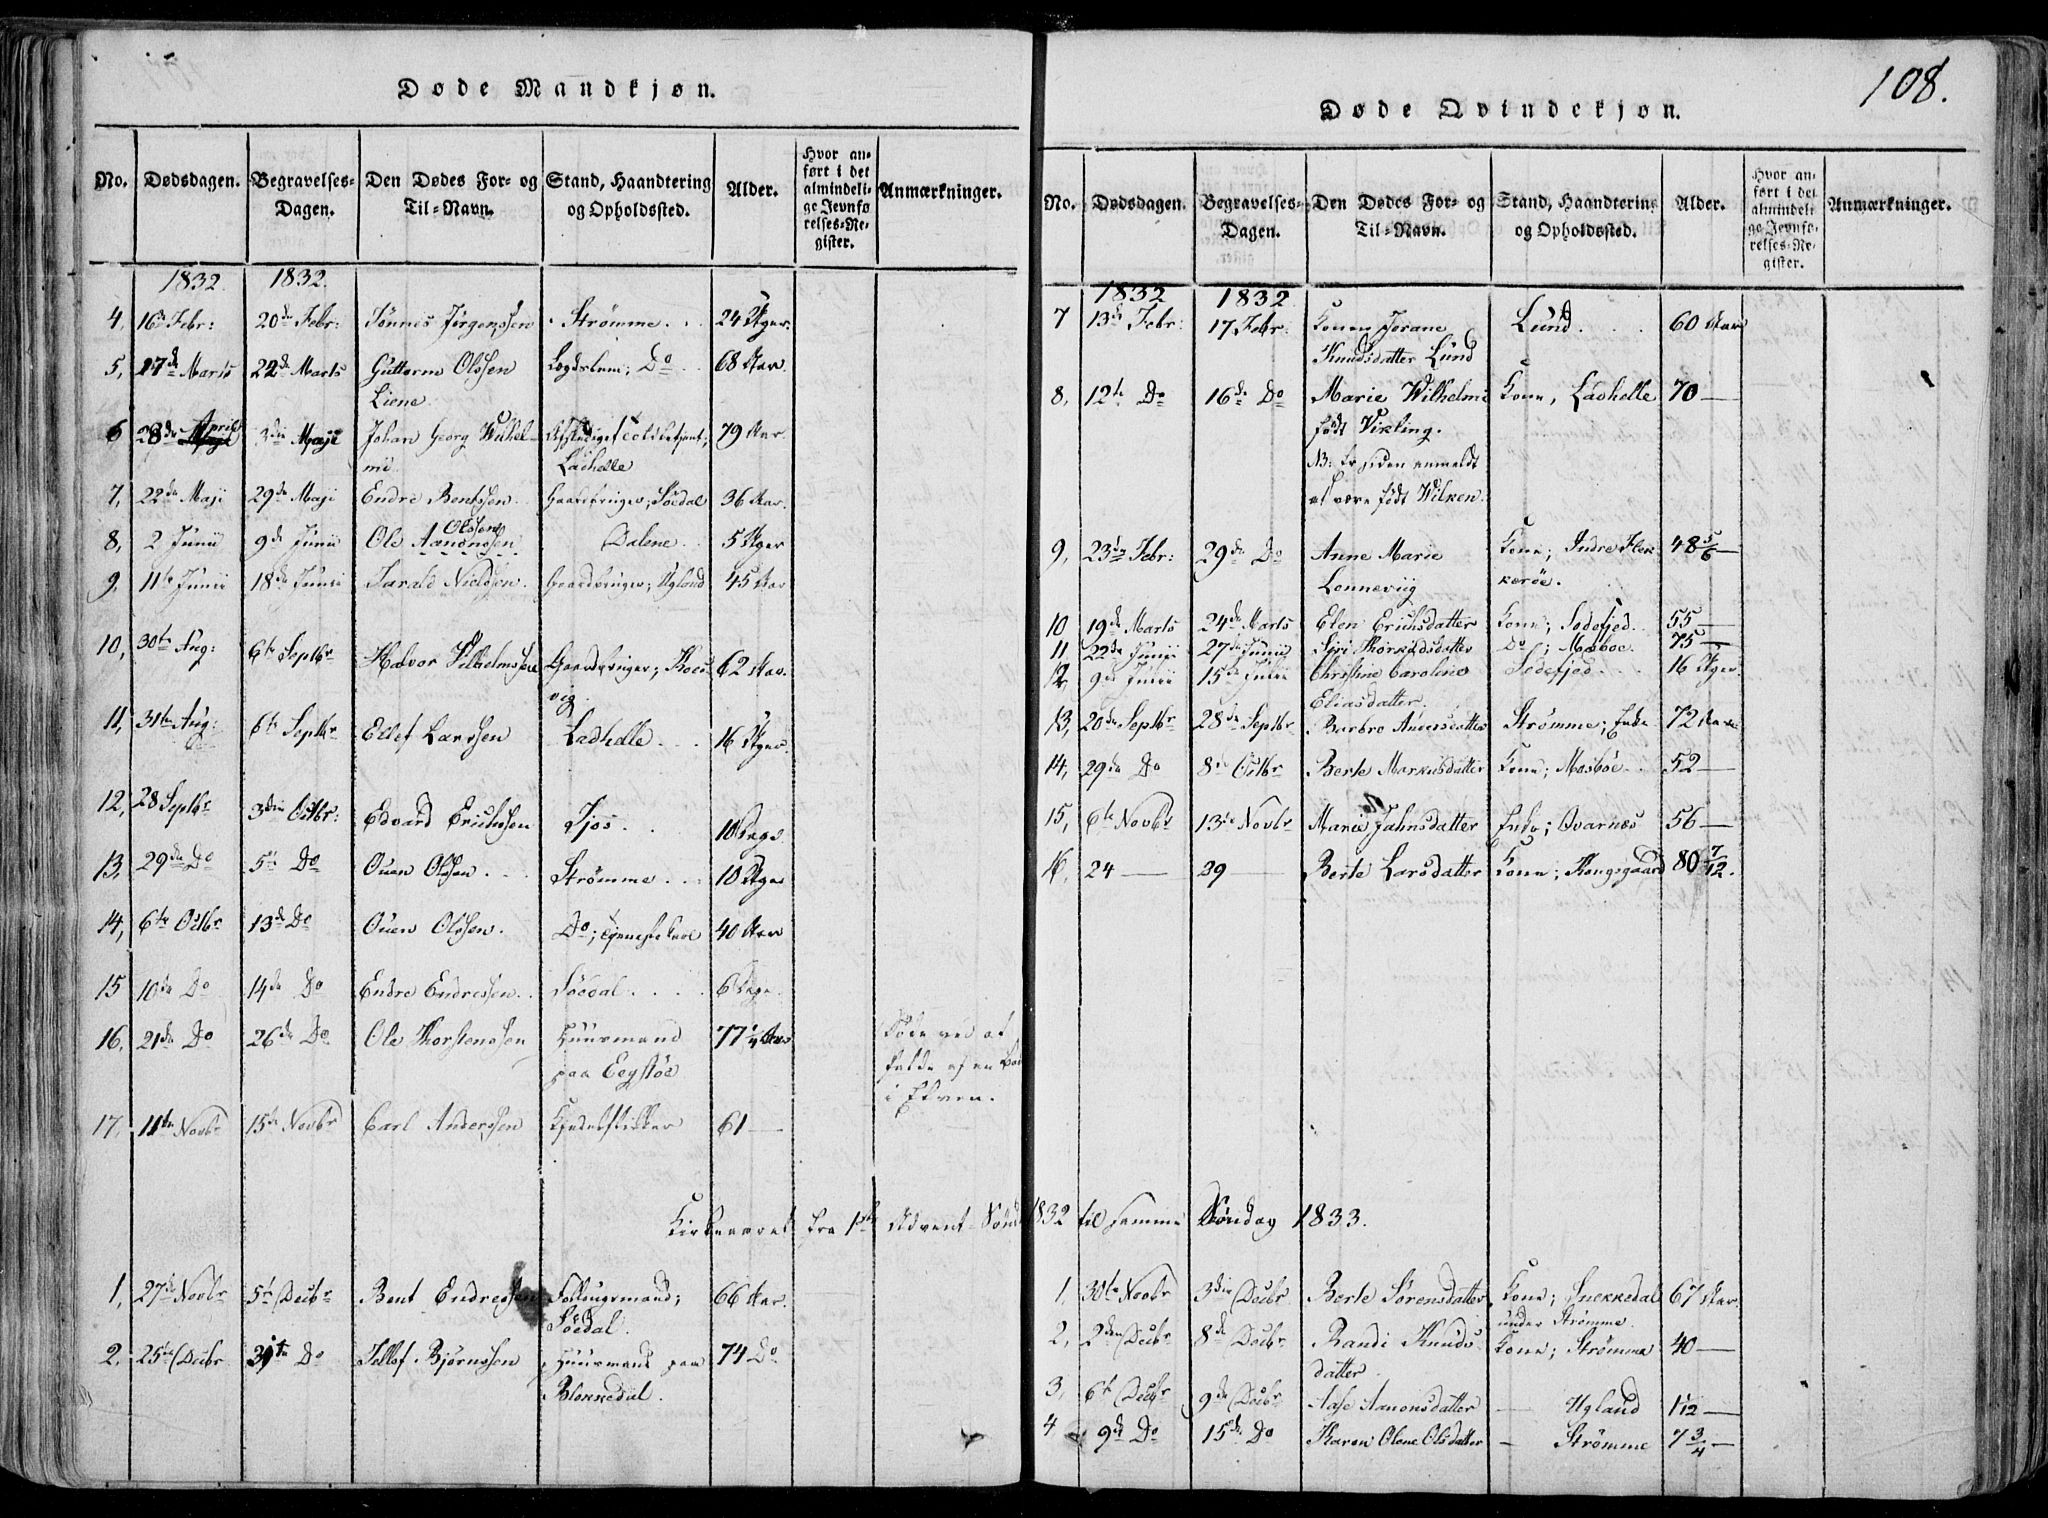 Døde Mandkjøn.
No. Dødsdagen. Begravelses-Dagen. Den Dødes For- og Til-Navn. Stand, Haandtering og Opholdssted. Alder. Hvor anført i det almindelige Jevnførelses-Register. Anmærkninger.
1832. 1832.
4, 16de Febr: 20de Febr: Tønnes Jørgenssen Strømme 24 Uger.
5, 17de Marts 22de Marts Guttorm Olssen Liene Do 68 Aar.
6 28de April 3die Maji Johan Georg Wilhelmi Lahelle 79 Aar.
7, 22de Maji 29de Maji Endre Bentssen Gaardbruger; Søedal 36 Aar.
8, 2 Junii 9de Junii Ole Olssen Dalene 5 Uger
9, 11te Junii 18de Junii Tarald Nielssen Gaardbruger; Ugland 45 Aar
10, 30te Aug: 6te Septbr Halvor Gaardbruger; 62 Aar.
11, 31te Aug: 6te Septbr Ellef Larssen Ladhelle 16 Uger.
12, 28 Septbr 3die Octbr: Edvard Erichssen Tjos 10 Dage
13, 29de Do 5te Do Ouen Olssen Strømme 10 Uger
14, 6te Octbr 13de Do Ouen Olssen. Do; Tjenestekarl 40 Aar
15 10de Do 14de Do Endre Endressen Søedal 6 Dage.
16, 21de Do 26de Do Ole Thorstenssen Huusmand paa Eegstøe 77 1/4 Aar Døde ved at falde af en Baad i Elven.
17, 11te Novbr 15de Novbr Carl Anderssen Kjedelflikker 61 —
Kirkeaaret fra 1ste Advent-Sønd 1832 til samme Søndag 1833.
1, 27de Novbr 5te Decbr Bent Endressen Søedal. 66 Aar.
2, 25de Decbr 31te Do Tellef Bjørnssen Huusmand paa Blekkedal. 74 Do
108.
Døde Qvindekjøn.
No. Dødsdagen. Begravelses-Dagen. Den Dødes For- og Til-Navn. Stand, Haandtering og Opholdssted. Alder. Hvor anført i det almindelige Jevnførelses-Register. Anmærkninger.
1832 1832
7 13de Febr: 17 Febr: Konen Jorane Knudsdatter Lund Lund 60 Aar
8, 12te Do 16de Do Marie Wilhelmi født Vikling. NB: Er siden anmeldt at være født Wilken. Kone, Ladhelle 70 —
9, 23de Febr: 29de Do Anne Marie Lonneviig Kone; Indre Flekkerøe. 48 5/6 —
10 19de Marts 24de Marts Elen Erichsdatter Kone; Sødefjed 55 —
11, 22de Junii 27de Junii Siri Do; Mosboe 75 —
12, 9de Julii 15de Julii Christine Caroline Eliasdatter. Sødefjed 16 Uger.
13, 20de Septbr 28de Septbr Barbro Andersdatter Strømme; Enke 72 Aar
14, 29de Do 8de Octbr Berte Markusdatter Kone; Mosbøe 52 —
15, 6te Novbr 13de Novbr Marie Jahnsdatter Enke; Qvarnes 56 —
16, 24 — 29 — Berte Larsdatter Kone; Kongsgaard 80 7/12.
1, 30te Novbr 3die Decbr Berte Sørensdatter Kone; Snekkedal under Strømme 67 Aar.
2, 2den Decbr 8de Decbr Randi Knudsdatter Kone; Strømme 40 —
3, 6te Decbr 9de Decbr Aase Aanonsdatter — Ugland 1/12 —
4 9de Do 15de Do Karen Olene Olsdatter — Strømme 7 3/4 —